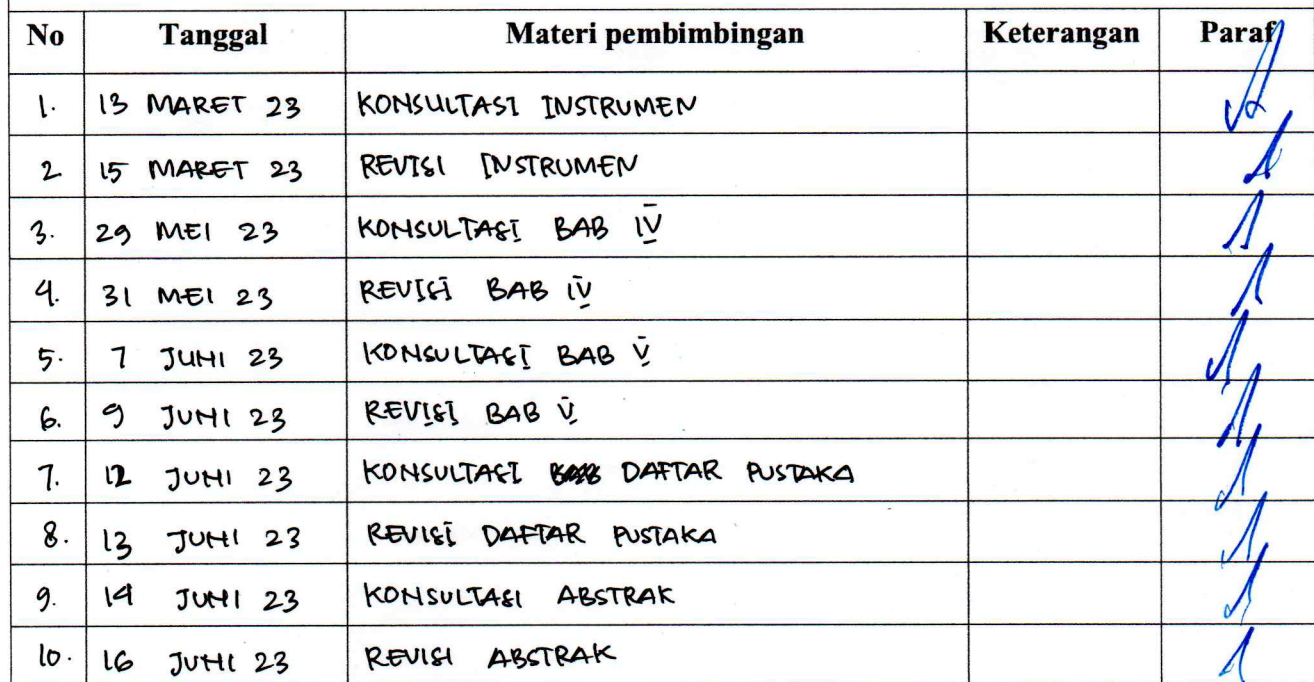 No Tanggal Materi pembimbingan Keterangan Paraf
1. 13 MARET 23 KONSULTASI INSTRUMEN
2 15 MARET 23 REVISI INSTRUMEN
3. 29 MEI 23 KONSULTASI BAB IV
4. 31 MEI 23 REVISI BAB IV
5. 7 JUNI 23 KONSULTASI BAB V
6. 9 JUNI 23 REVISI BAB V
7. 12 JUNI 23 KONSULTASI DAFTAR PUSTAKA
8. 13 JUNI 23 REVISI DAFTAR PUSTAKA
9. 14 JUNI 23 KONSULTASI ABSTRAK
10. 16 JUNI 23 REVISI ABSTRAK